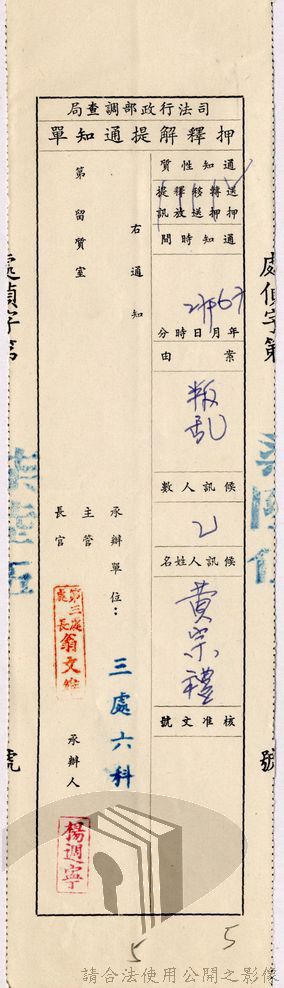 司法行政部調查局
押釋解提通知單
通知性質
送押
轉押
移送
釋放
提訊
通知時間
年月日時分
案由
叛乱
候訊人數
乙
候訊人姓名
黃宗禮
核准文號
右通知
第留質室
承辦單位：三處六科
主管
長官
第三處
處長
翁文維
承辦人
楊迴寧
處偵字第
號
處偵字第
號
5
5
請合法使用公開之影像